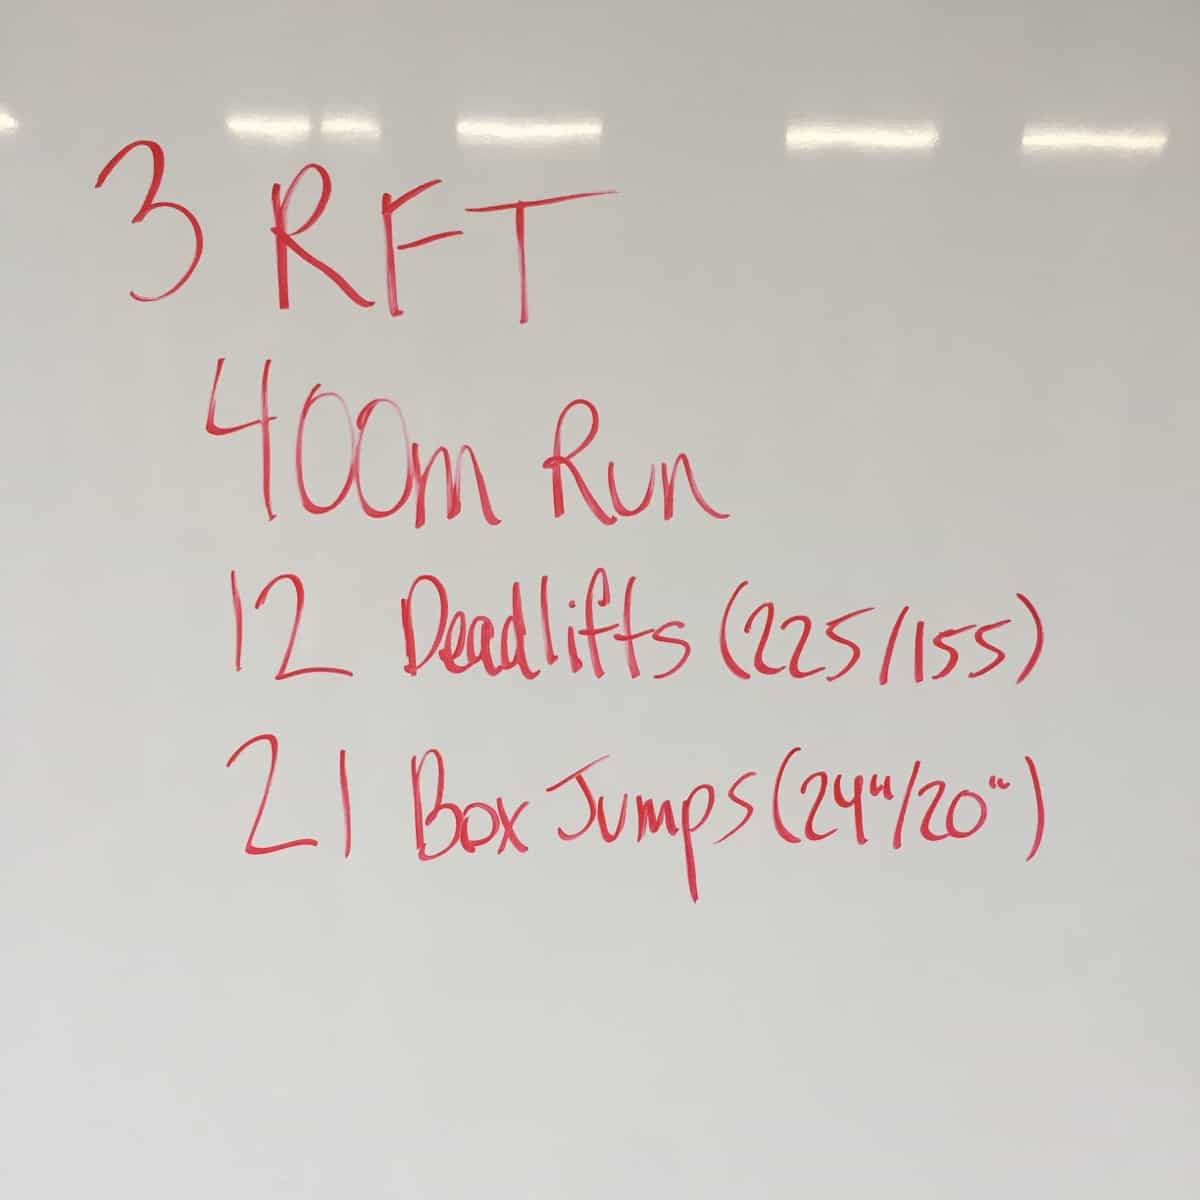 3 RFT
400m Run
12 Deadlifts (225/155)
21 Box Jumps (24"/20")